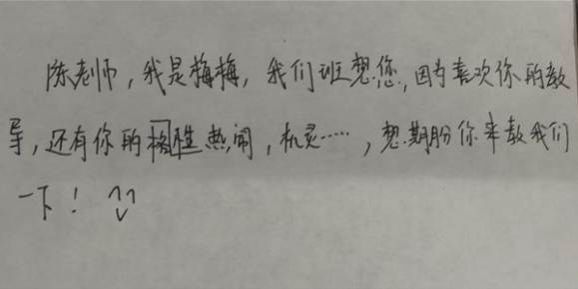 陈老师，我是梅梅，我们班想您，因为喜欢你的教
导，还有你的格性热闹，机灵……，想期盼你来教我们
一下！